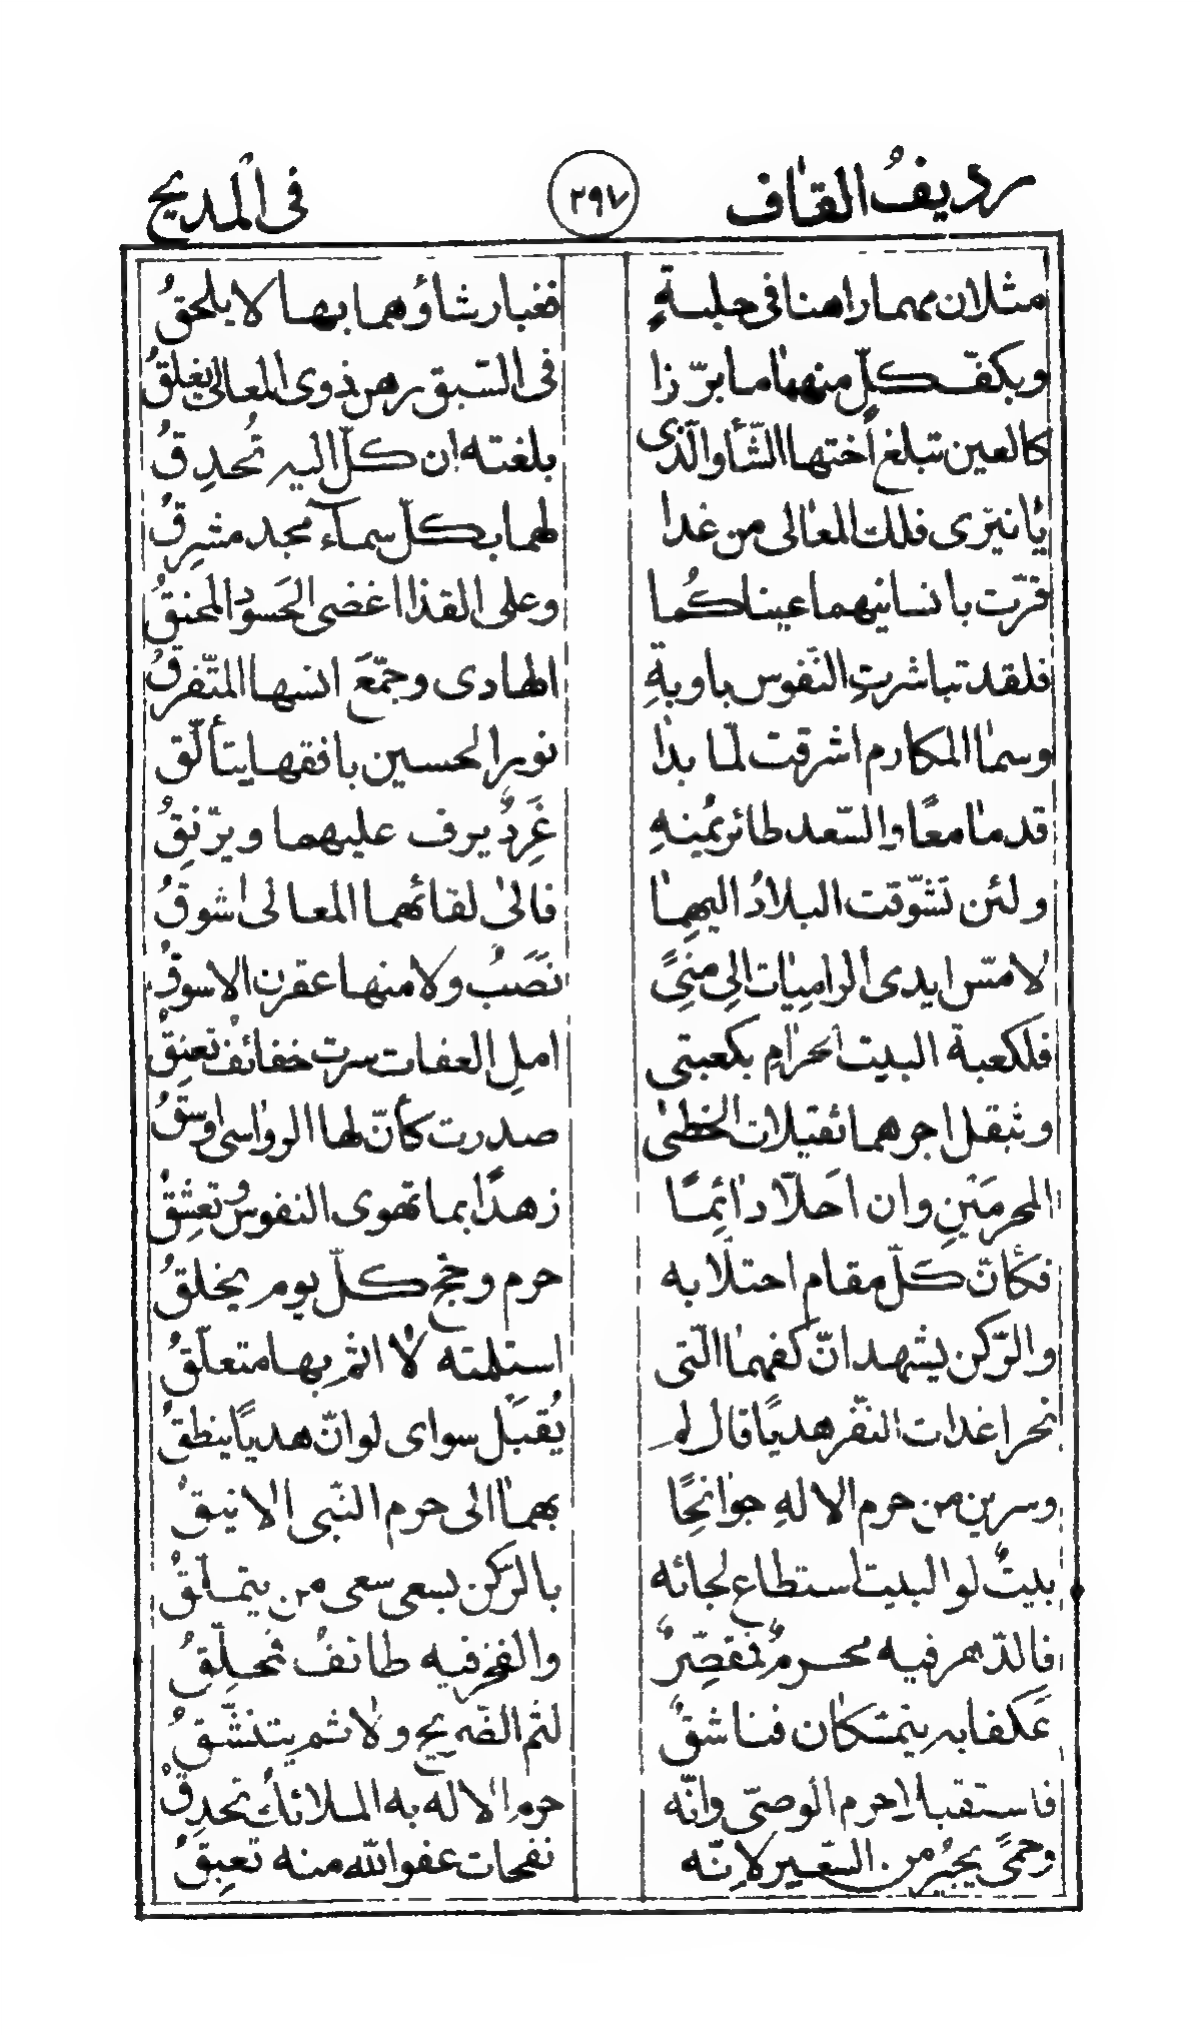 رديفُ القاف ٢٩٧ فى المديح
مثلان مهما راهنا فى حلبةٍ فغبار شاؤهما بها لا يلحقُ
وبكفّ كلّ منهما ما برّزا فى السّبق رهن ذوى المعالى يغلقُ
كالعين تبلغ اُختها الشّأو الّذى بلغته ان كلّ اليه تُحدِقُ
يا نيّرى فلك المعالى من غدا لهما بكلّ سماء مجد مشرِقُ
قرّت بانسانيهما عينا كُما وعلى القذا اغضى الحَسودُ المحنقُ
فلقد تباشرتِ النّفوس باوبةِ الهادى وجمّعَ انسها المتّفرقُ
وسما المكارم اشرقت لمّا بدا نور الحسين بافقها يتألّق
قدما معًا والسّعد طائر يُمنهِ غَرِدٌ يرف عليهما ويرّنِقُ
ولئن تشّوقت البلادُ اليهِما فالى لقائهما المعالى اشوقُ
لامسّ ايدى الراميات الى مِنىً نَصَبُ ولا منها عقرن الاسوقُ
فلكعبة البيت الحرامِ بكعبتى املِ العفات سرت خفائفُ تعنِقُ
وثبقل اجرهما ثقيلات الخطى صدرت كأنّ لها الرواسى اوسقُ
المحرمَينِ وان احَلّا دائِمًا زهدًا بما تهوى النفوسُ وتعشِقُ
فكأنّ كلّ مقام احتلّا به حرم وحجّ كلّ يوم يخلقُ
والرّكن يشهد انّ كفهما الّتى استلمته لا اثم بها متعلّقُ
نحرا غدات النّفر هديًا قال لم يُقبَل سواى لو انّ هديًا ينطقُ
وسرين من حرم الالهِ جوانحًا بهما الى حرم النّبى الانيقُ
بيتٌ لو البيت استطاع لجائه بالرّكن يسعى سعى من يتملّقُ
فالدّهر فيه محرمٌ مُقصِّرٌ والفخر فيه طائفٌ مُحلِّقُ
عَكفا به يتمسّكان فناشقٌ لثم الضّريح ولاثم يتنشّقُ
فاستقبلا حرم الوصىّ وانّه حرمِ الاله به الملائكُ تحدِقُ
وحمىً يجيرُ من السّعير لانّه نفحات عفو الله منه تعبِقُ